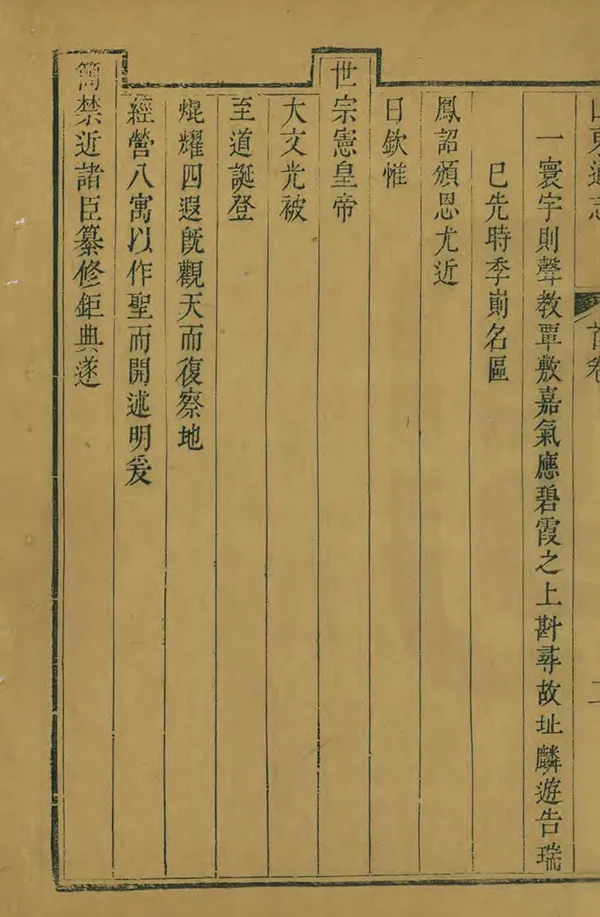 山東通志 首卷 二
一寰宇則聲教覃敷嘉氣應碧霞之上斟尋故址麟遊告瑞
巳先時季崱名區
鳳詔頒恩尤近
日欽惟
世宗憲皇帝
大文光被
至道誕登
焜耀四遐旣觀天而復察地
經營八寓以作聖而開述明爰
簡禁近諸臣纂修鉅典遂